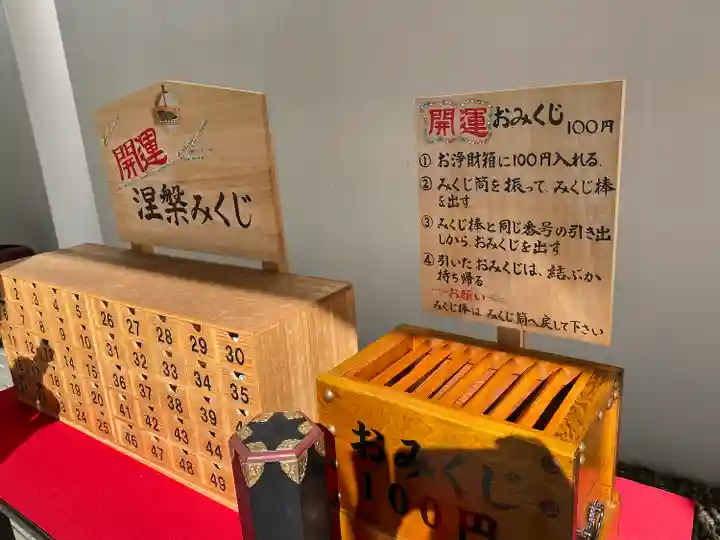 開運
涅槃みくじ
開運おみくじ 100円
① お浄財箱に100円入れる.
② みくじ筒を振って、みくじ棒
を出す
③ みくじ棒と同じ番号の引き出
しから、おみくじを出す
④ 引いたおみくじは、結ぶか
持ち帰る
お願い
みくじ棒は、みくじ筒へ戻して下さい
2 3 4 5 26 27 28 29 30
7 8 9 10 31 32 33 34 35
36 37 38 39 40
41 42 43 44 45
24 25 46 47 48 49
おみくじ
100円